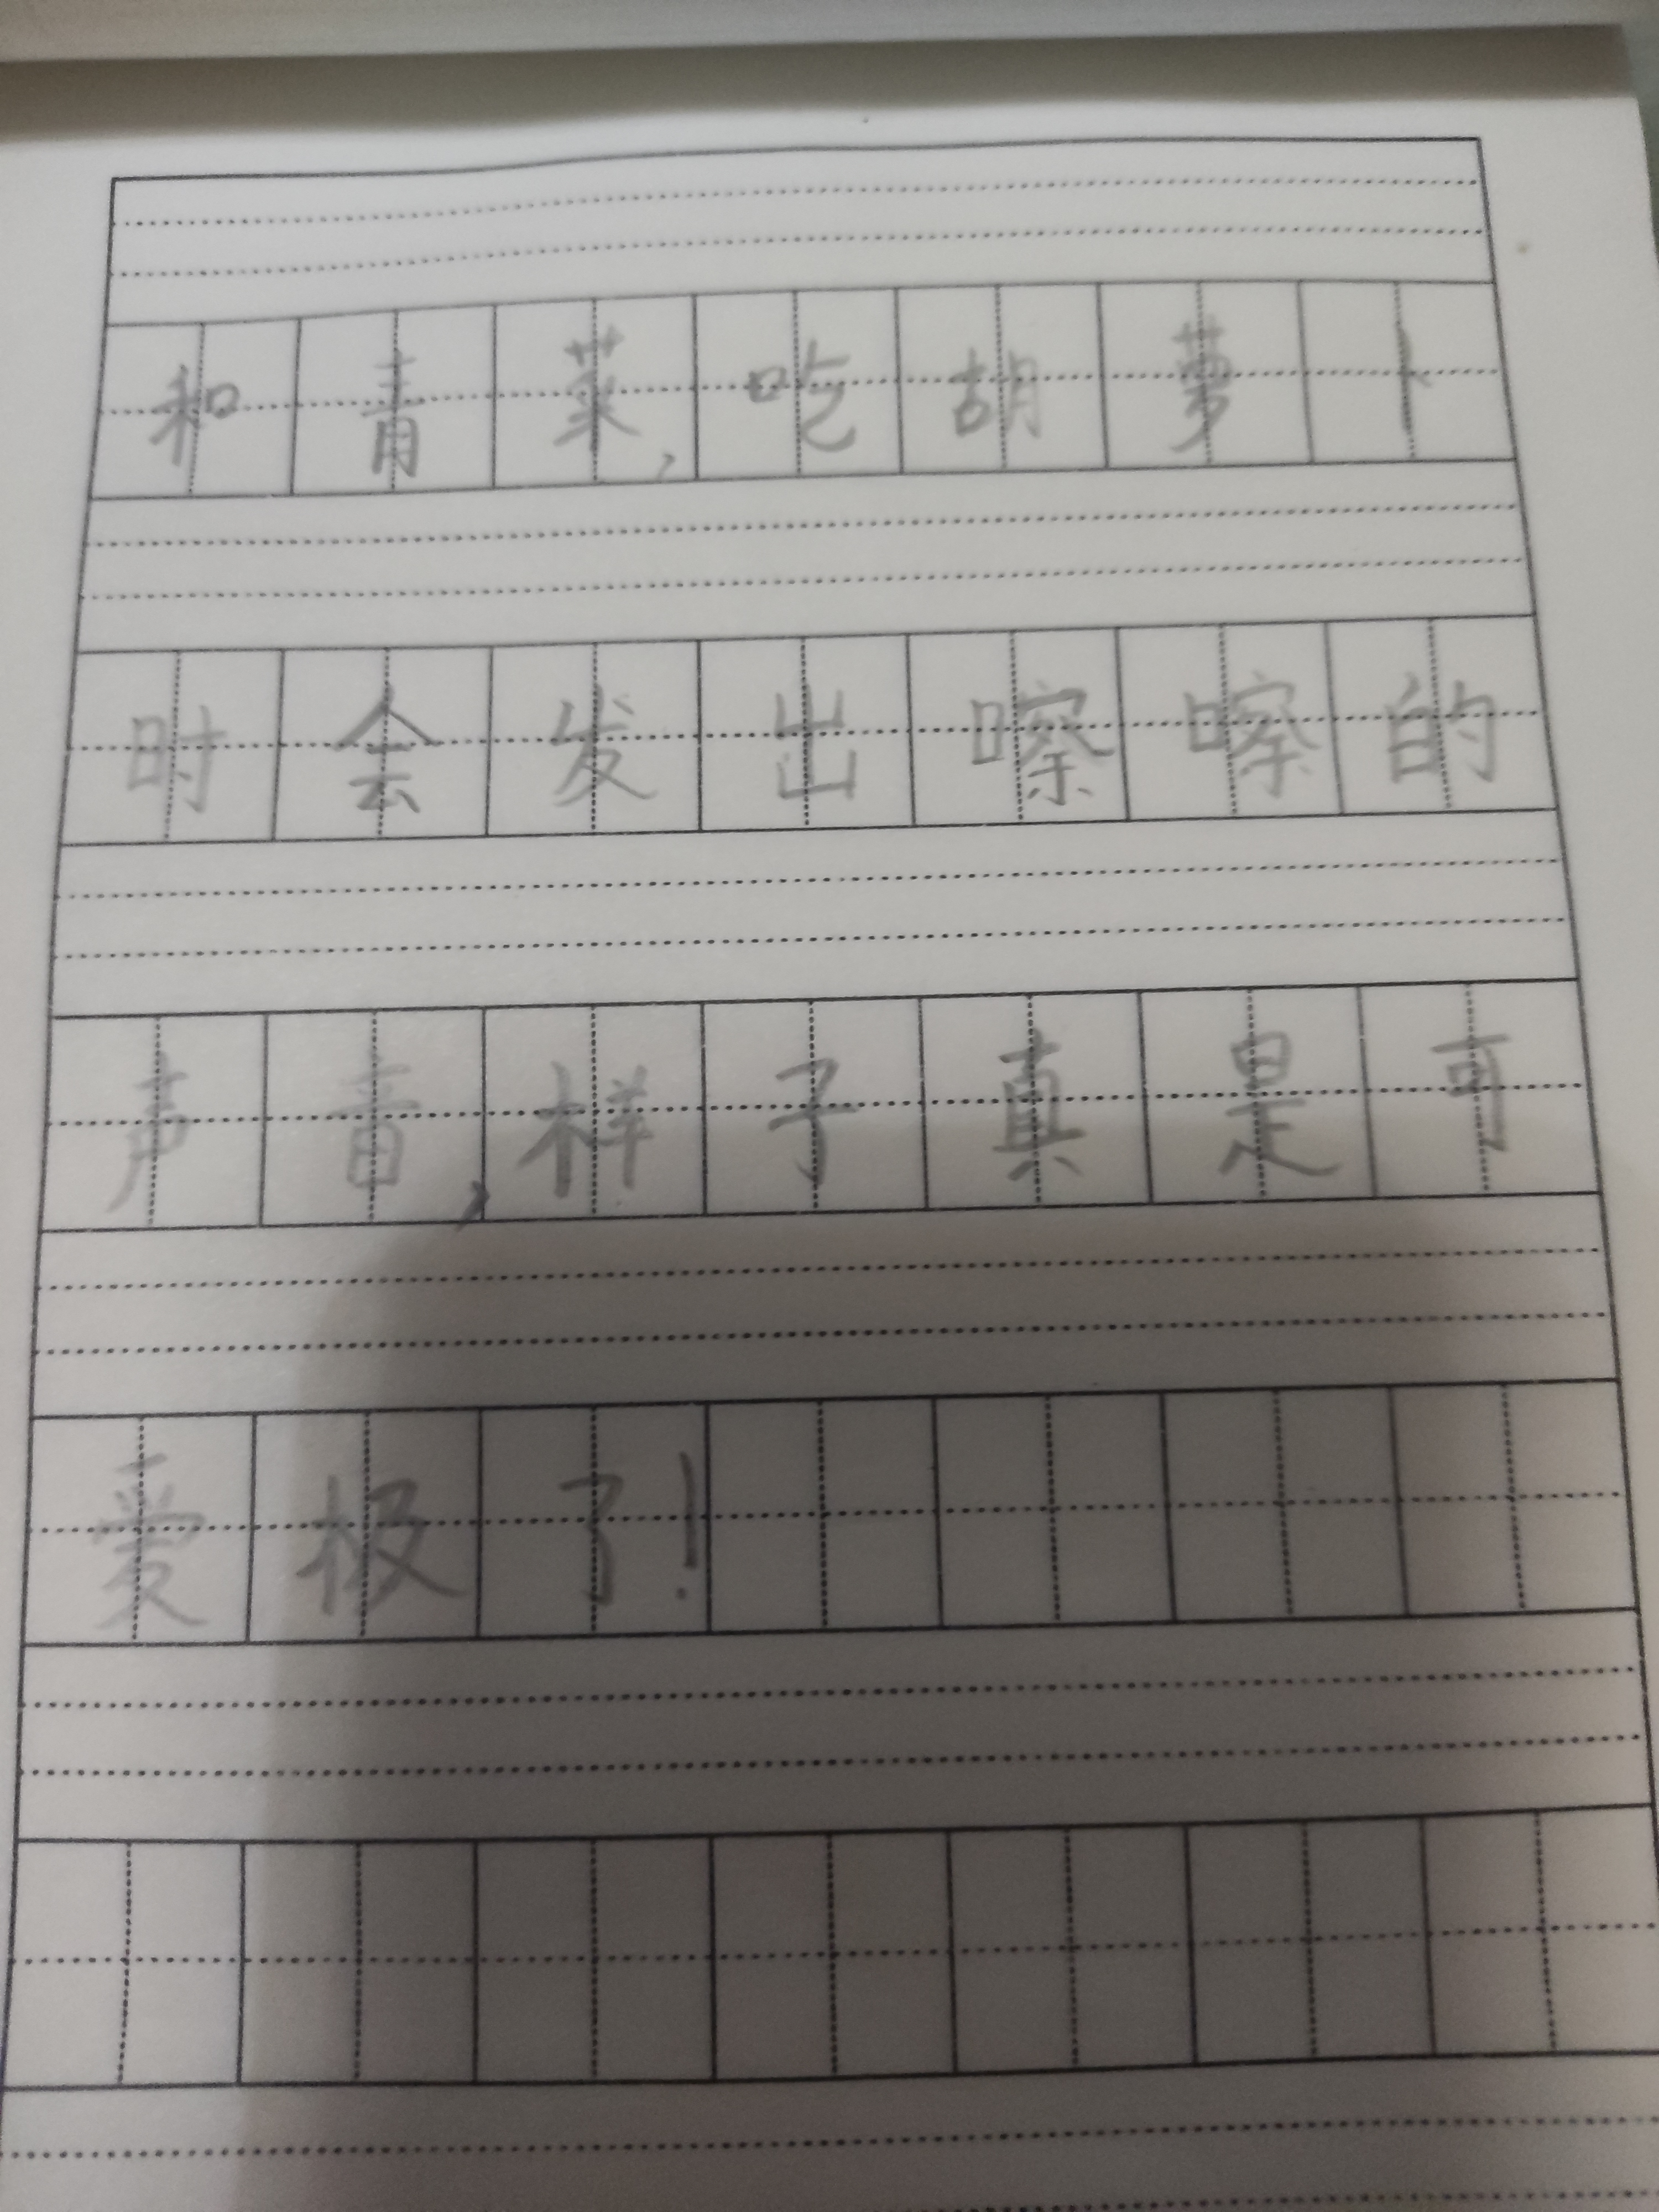 和青菜,吃胡萝卜
时会发出嚓嚓的
声音,样子真是可
爱极了!